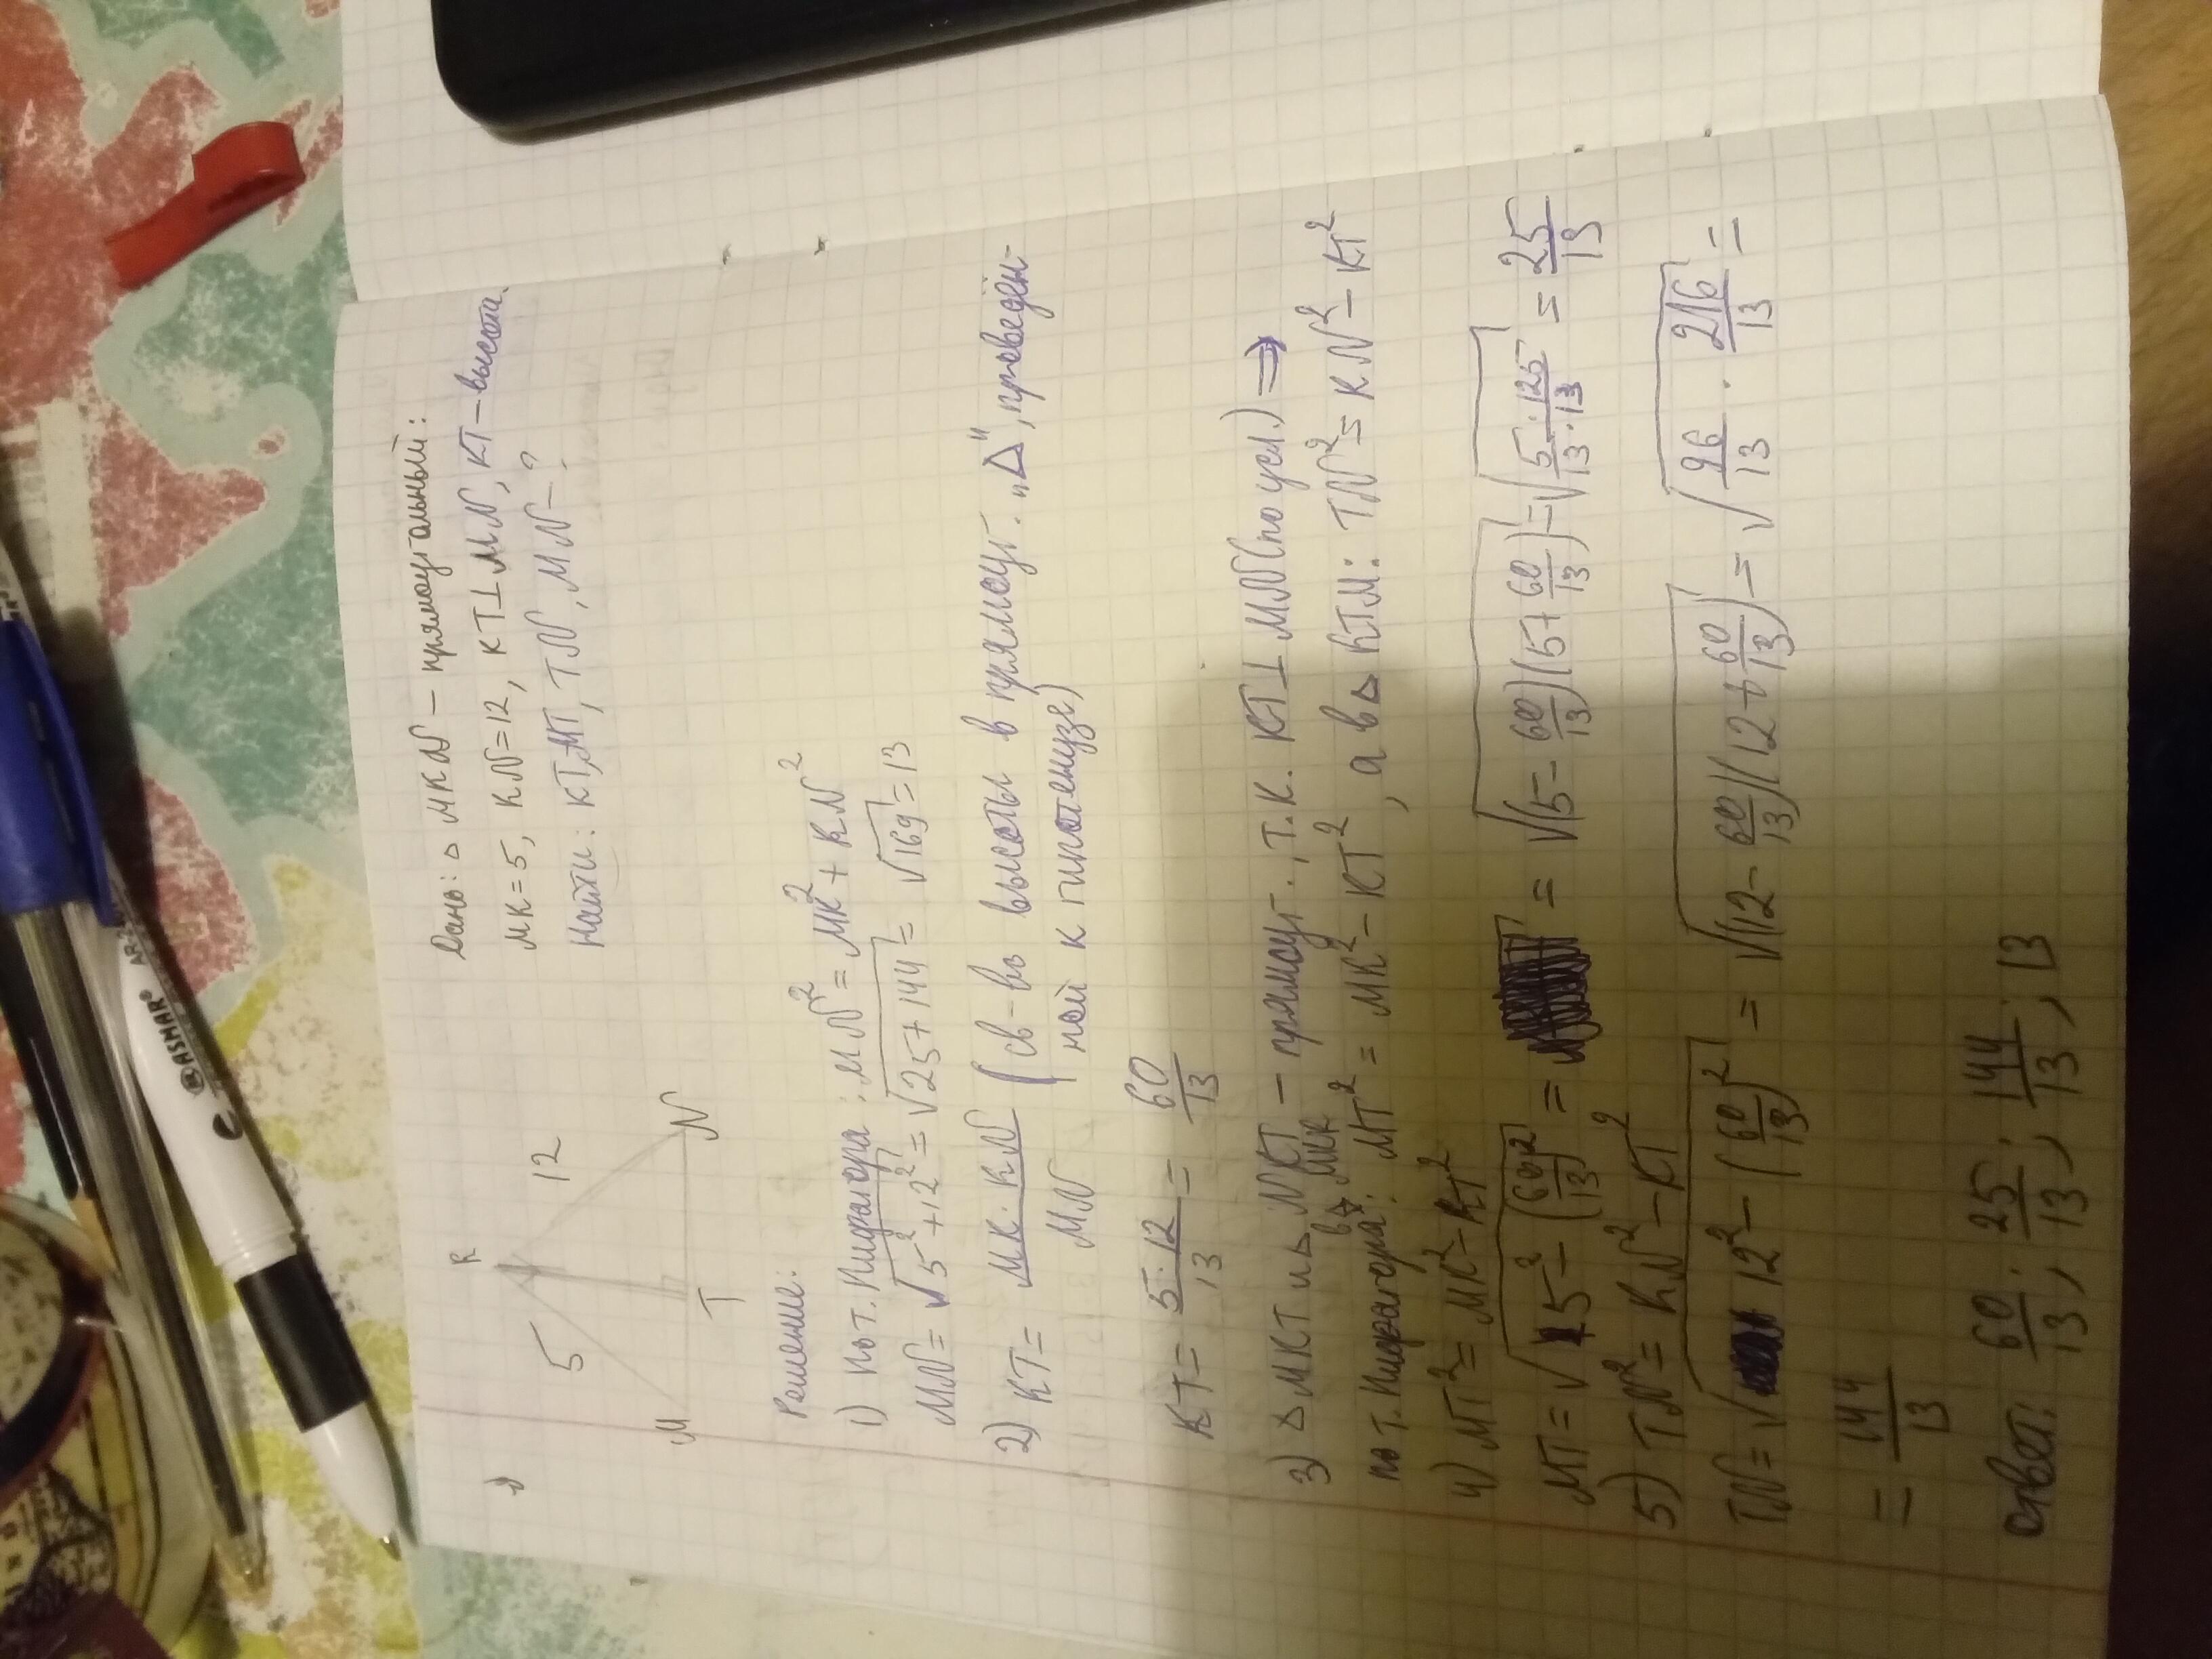 Дано: △ MKN – прямоугольный:
MK=5, KN=12, KT⊥MN, KT – высота.
Найти: KT, MT, TN, MN – ?
K
5
12
M
T
N
Решение:
1) По т. Пифагора: MN² = MK² + KN²
MN = √5²+12² = √25+144 = √169 = 13
2) KT = MK · KN / MN (св-во высоты в прямоуг. „△", проведён-
ной к гипотенузе)
KT = 5·12/13 = 60/13
3) △ MKT и △ NKT – прямоуг., т.к. KT⊥MN (по усл.) ⇒
по т. Пифагора: в △ MKT MT² = MK² – KT², а в △ KTM: TN² = KN² – KT²
4) MT² = MK² – KT²
MT = √5² – (60/13)² = = √(5 – 60/13)(5 + 60/13) = √5·125/13·13 = 25/13
5) TN² = KN² – KT²
TN = √12² – (60/13)² = √(12 – 60/13)(12 + 60/13) = √96/13 · 216/13 =
= 144/13
Ответ: 60/13; 25/13; 144/13; 13
ASMAR®